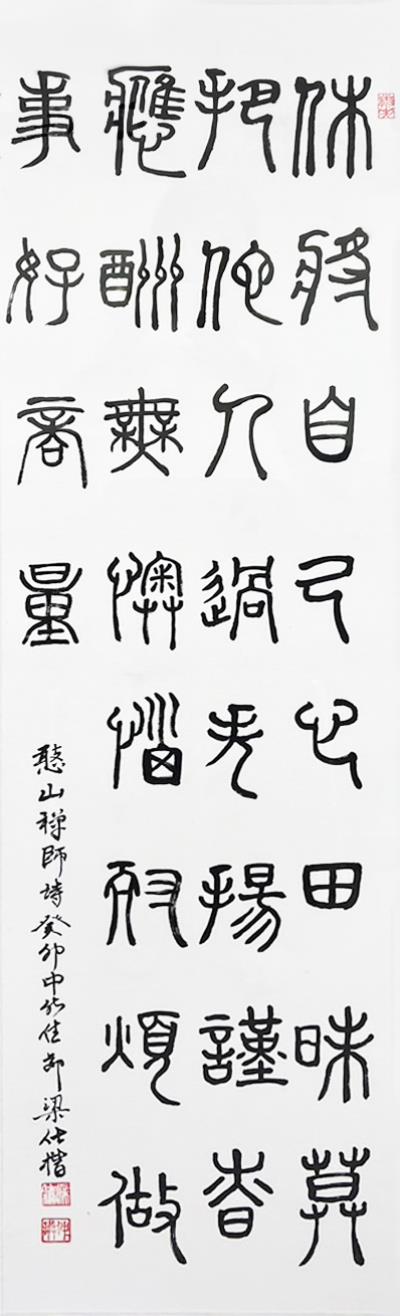 休將自己心田昧莫
把他人過失揚謹昚
應酬無懊惱耐煩做
事好商量
憨山禪師詩癸卯中秋佳節梁仕楷